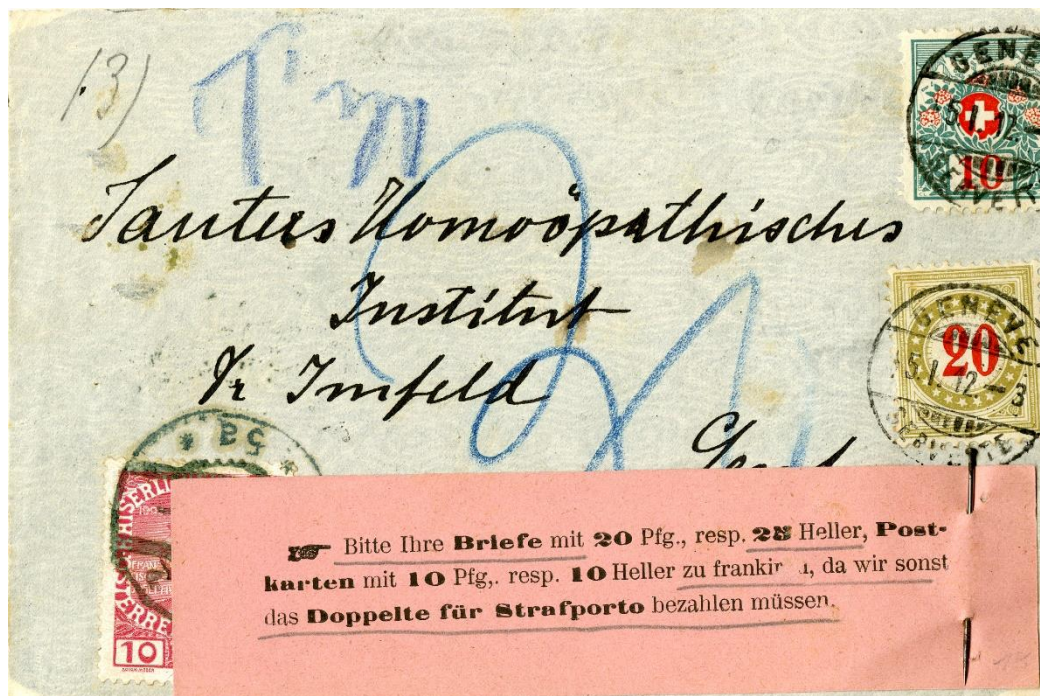 13)
T
Sauters Homoöpathisches
Institut
Dr Imfeld
Genf
GENEVE
5.I.12
10
GENEVE
5.I.12-3
20
* BS *
10
☞ Bitte Ihre Briefe mit 20 Pfg., resp. 25 Heller, Post-
karten mit 10 Pfg,. resp. 10 Heller zu frankir n, da wir sonst
das Doppelte für Strafporto bezahlen müssen.